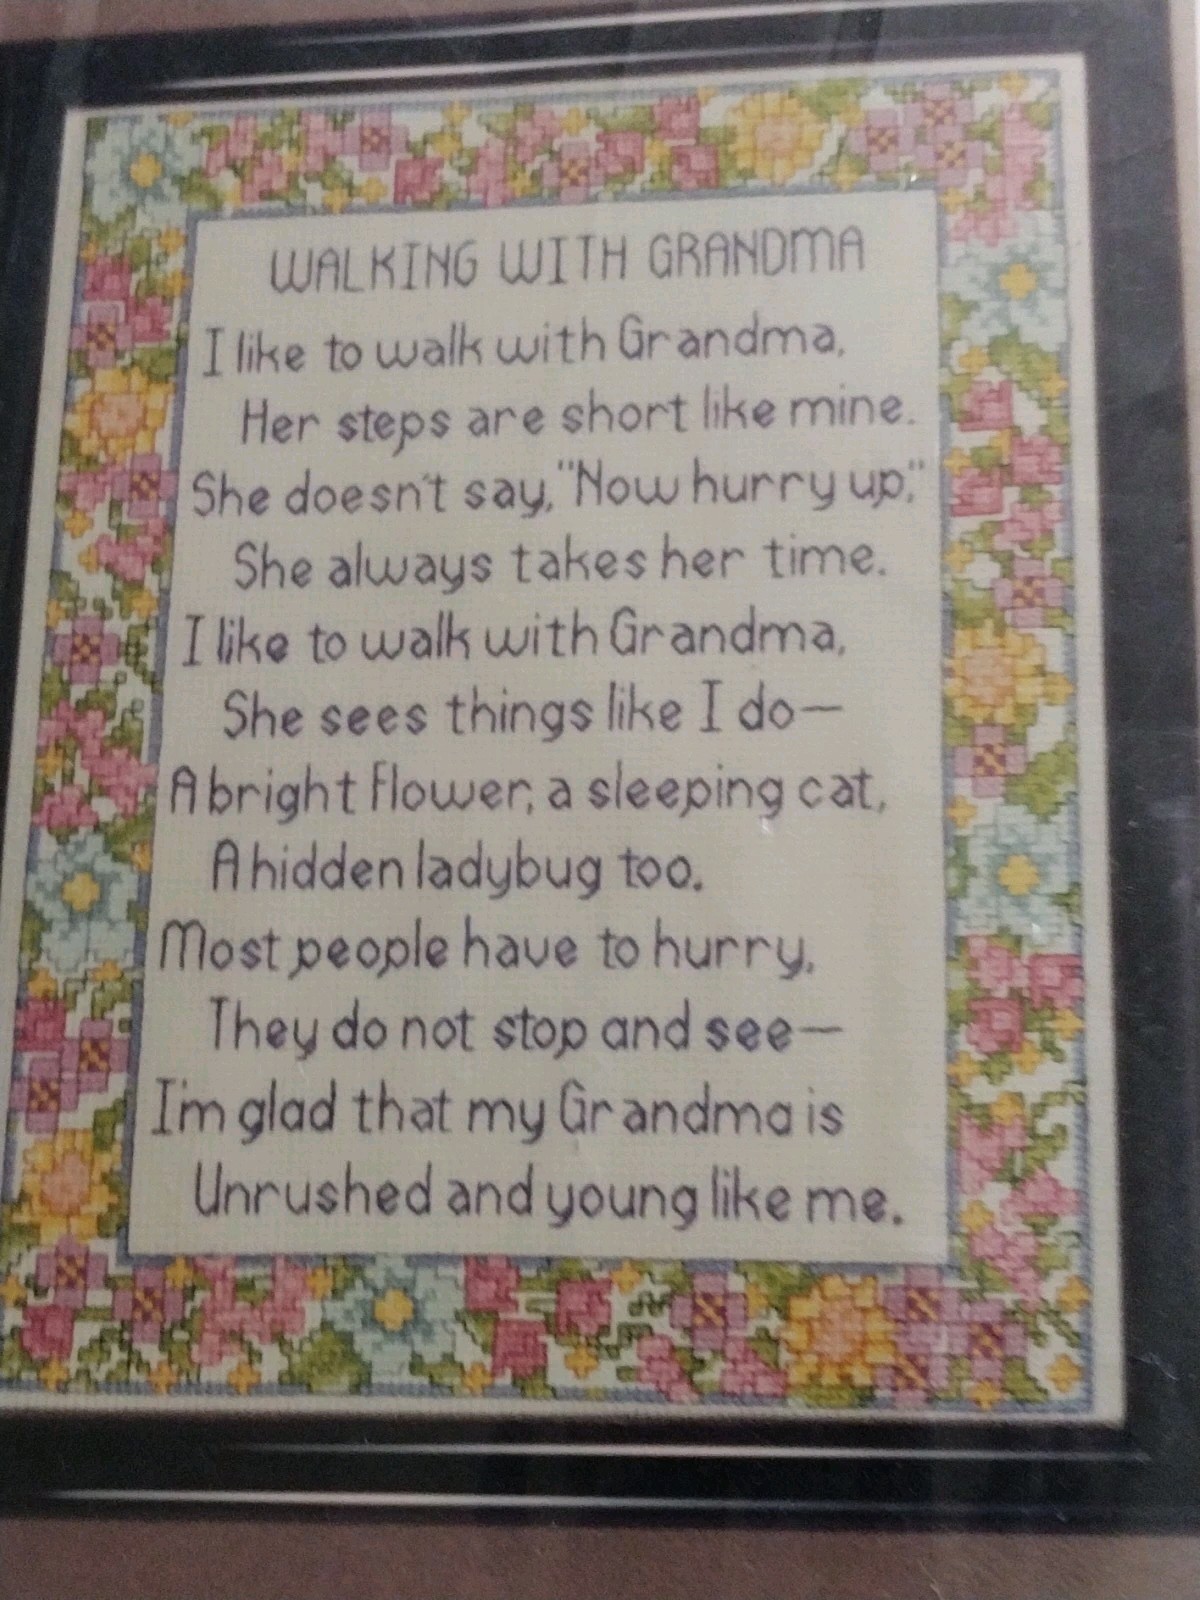 WALKING WITH GRANDMA
I like to walk with Grandma,
Her steps are short like mine.
She doesn't say, "Now hurry up,"
She always takes her time.
I like to walk with Grandma,
She sees things like I do—
A bright flower, a sleeping cat,
A hidden ladybug too.
Most people have to hurry,
They do not stop and see—
I'm glad that my Grandma is
Unrushed and young like me.